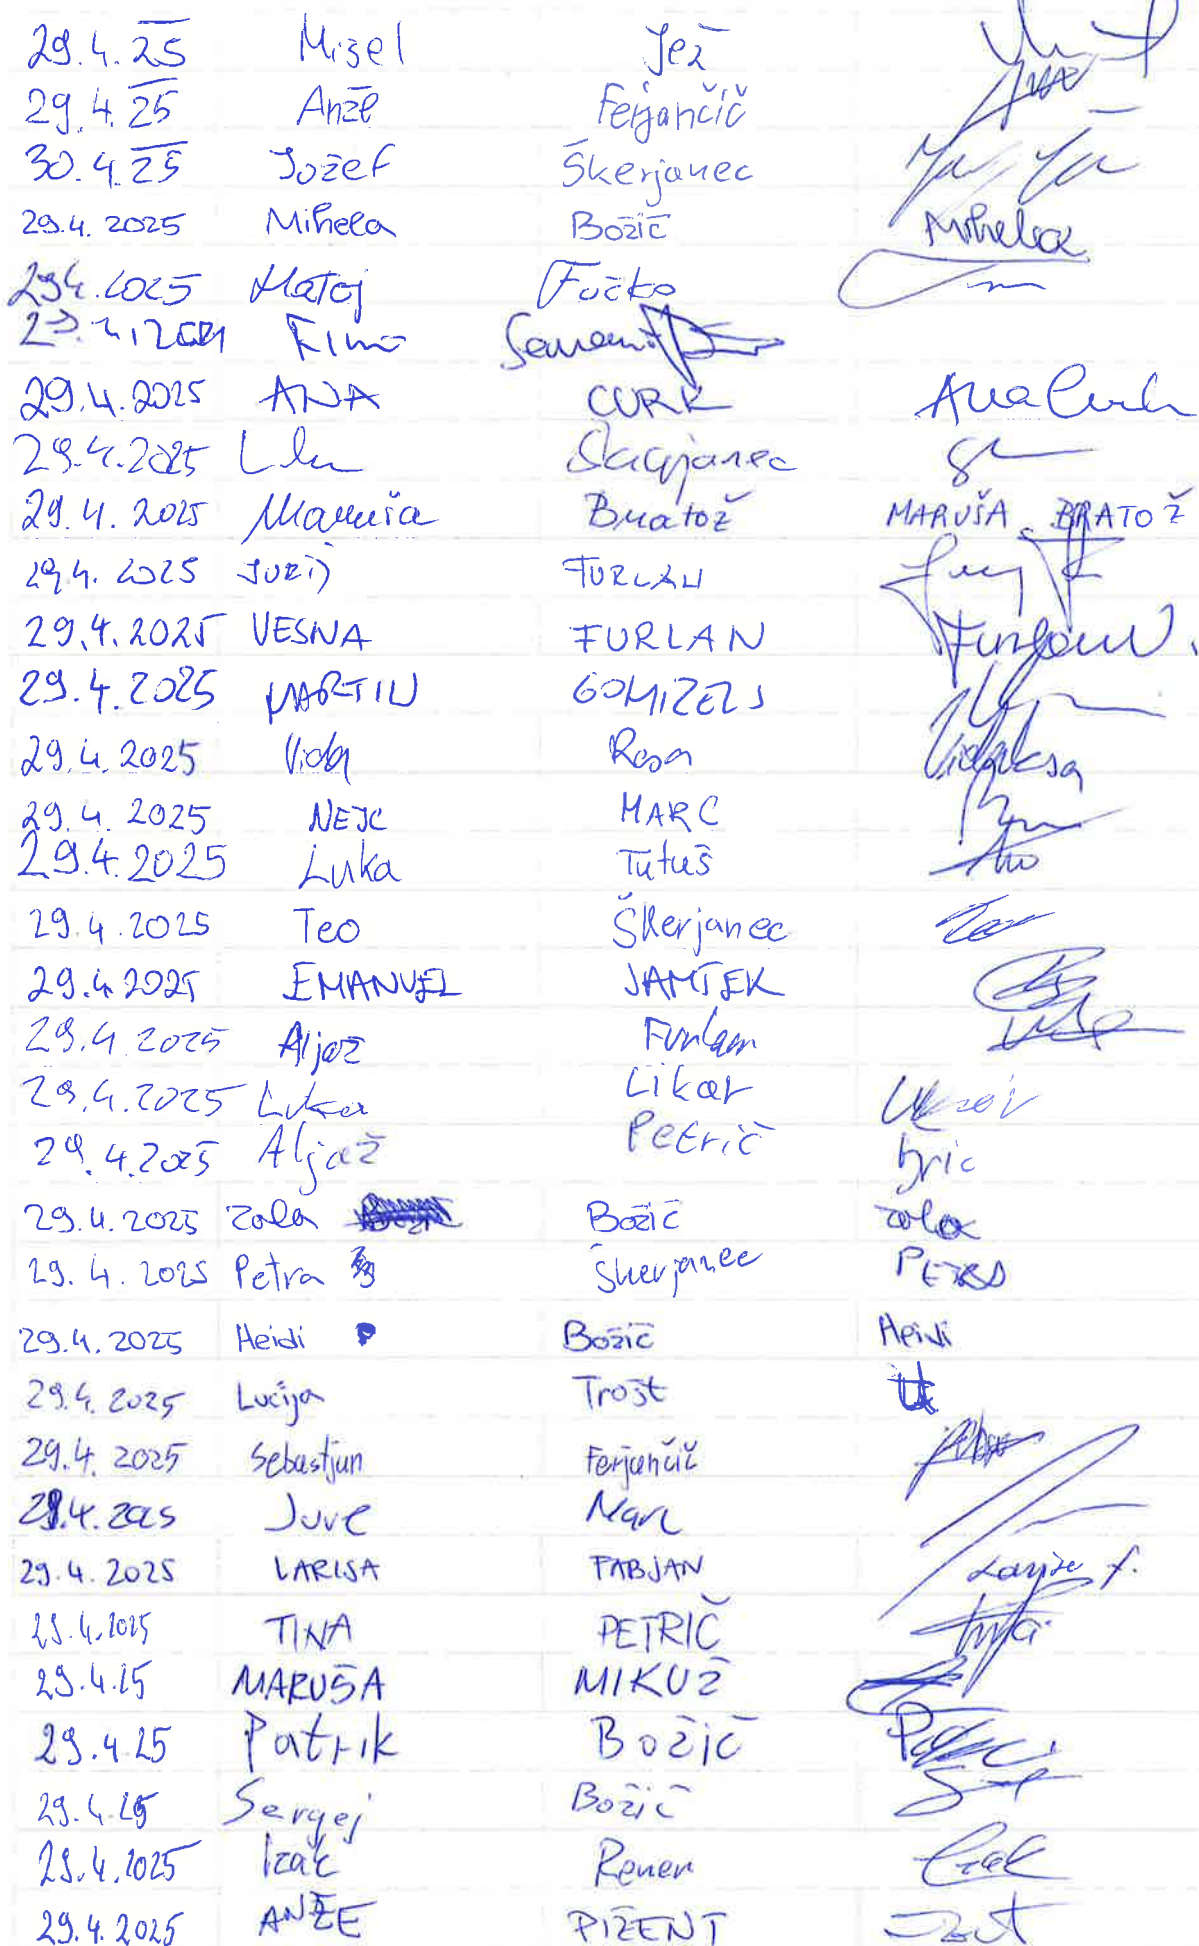 29.4.25 Mišel Jež
29.4.25 Anže Ferjančič
30.4.25 Jožef Škerjanec
29.4.2025 Mihela Božič Mihela
29.4.2025 Matej Fučko
29.4.2025 ANA CURK Ana Curk
29.4.2025 Škerjanec
29.4.2025 Maruša Bratož MARUŠA BRATOŽ
29.4.2025 JURIJ FURLAN
29.4.2025 VESNA FURLAN Furlan V.
29.4.2025 MARTIN GOMIZELJ
29.4.2025 Vida Rosa
29.4.2025 NEJC MARC
29.4.2025 Luka Tutuš
29.4.2025 Teo Škerjanec Teo
29.4.2025 EMANUEL JAMŠEK
29.4.2025 Aljaž Furlan
29.4.2025 Luka Likar
29.4.2025 Aljaž Petrič
29.4.2025 Zala Božič Zala
29.4.2025 Petra Škerjanec PETRA
29.4.2025 Heidi Božič Heidi
29.4.2025 Lucija Trošt
29.4.2025 Sebastjan Ferjančič
29.4.2025 Jure Marc
29.4.2025 LARISA FABJAN
29.4.2025 TINA PETRIČ Tina
29.4.25 MARUŠA MIKUŽ
29.4.25 Patrik Božič
29.4.25 Sergej Božič
29.4.2025 Izak Rener Izak
29.4.2025 ANŽE PIŽENT